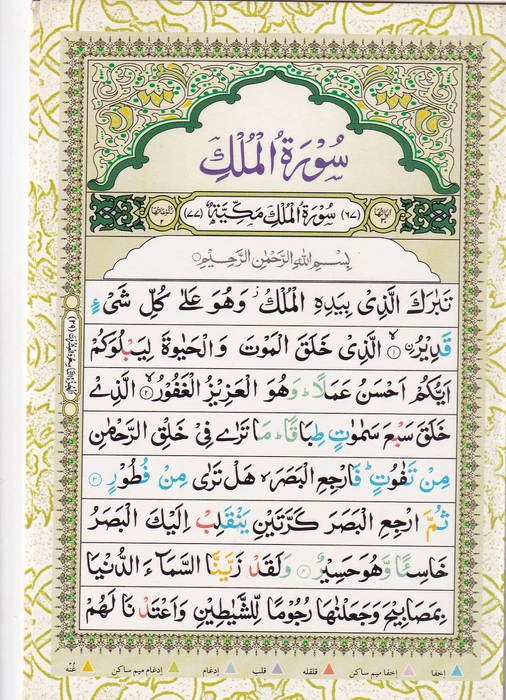 سُوْرَةُ الْمُلْكِ
اٰیَاتُهَا ٣٠ (٦٧) سُوْرَةُ الْمُلْكِ مَكِّیَّةٌ (٧٧) رُكُوْعَاتُهَا ٢
بِسْمِ اللهِ الرَّحْمٰنِ الرَّحِیْمِ
تَبٰرَكَ الَّذِیْ بِیَدِهِ الْمُلْكُ ز وَهُوَ عَلٰی كُلِّ شَیْءٍ
قَدِیْرُ ۨ ۙ ١ الَّذِیْ خَلَقَ الْمَوْتَ وَ الْحَیٰوةَ لِیَبْلُوَكُمْ
اَیُّكُمْ اَحْسَنُ عَمَلًا ؕ وَ هُوَ الْعَزِیْزُ الْغَفُوْرُ ۙ ٢ الَّذِیْ
خَلَقَ سَبْعَ سَمٰوٰتٍ طِبَاقًا ؕ مَا تَرٰی فِیْ خَلْقِ الرَّحْمٰنِ
مِنْ تَفٰوُتٍ ؕ فَارْجِعِ الْبَصَرَ ۙ هَلْ تَرٰی مِنْ فُطُوْرٍ ٣
ثُمَّ ارْجِعِ الْبَصَرَ كَرَّتَیْنِ یَنْقَلِبْ اِلَیْكَ الْبَصَرُ
خَاسِئًا وَّ هُوَ حَسِیْرٌ ٤ وَ لَقَدْ زَیَّنَّا السَّمَآءَ الدُّنْیَا
بِمَصَابِیْحَ وَ جَعَلْنٰهَا رُجُوْمًا لِّلشَّیٰطِیْنِ وَ اَعْتَدْنَا لَهُمْ
اخفا اخفا میم ساكن قلقله قلب ادغام ادغام میم ساكن غُنّه